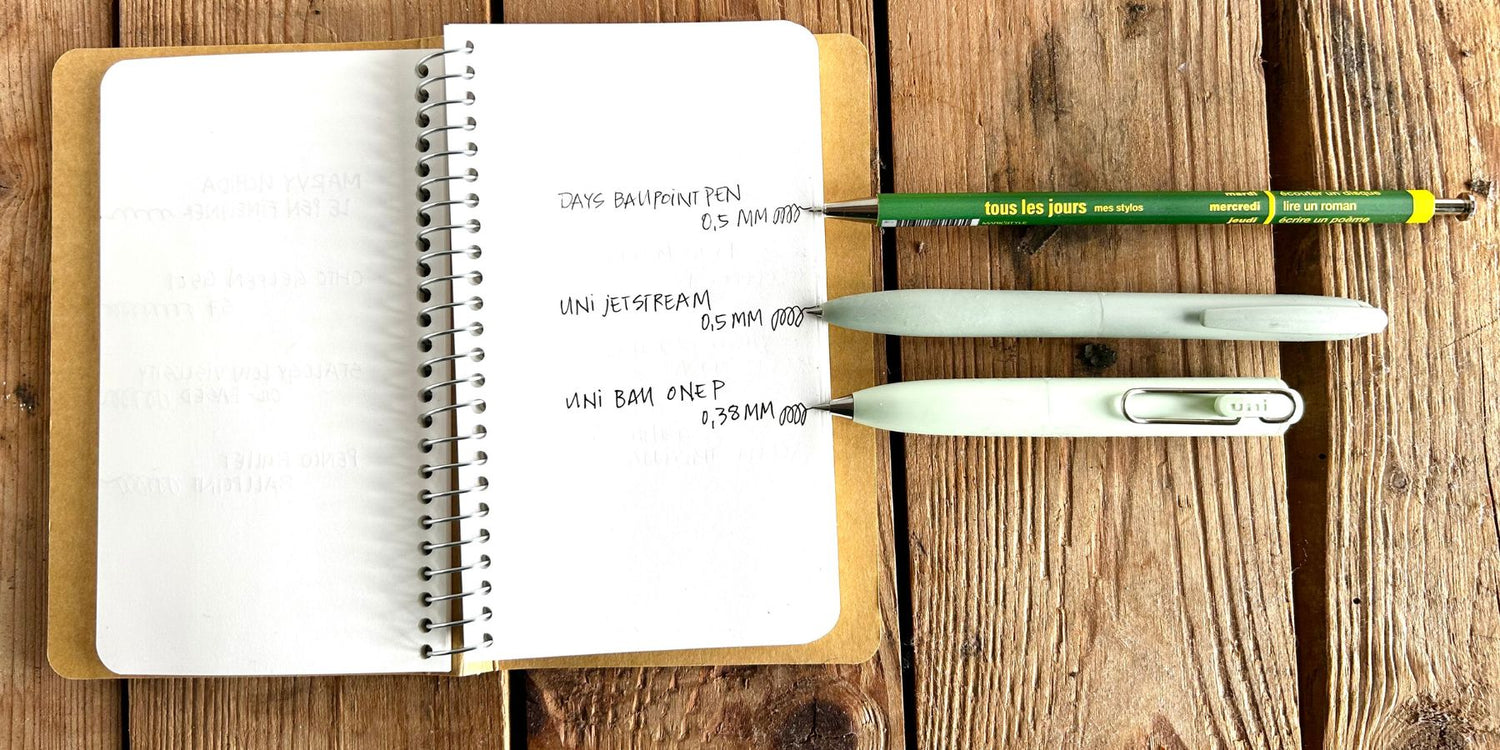 DAYS BALLPOINT PEN
0,5 MM
UNI JETSTREAM
0,5 MM
UNI BALL ONE P
0,38 MM
tous les jours mes stylos
MARK'STYLE
mardi écouter un disque
mercredi lire un roman
jeudi écrire un poème
uni